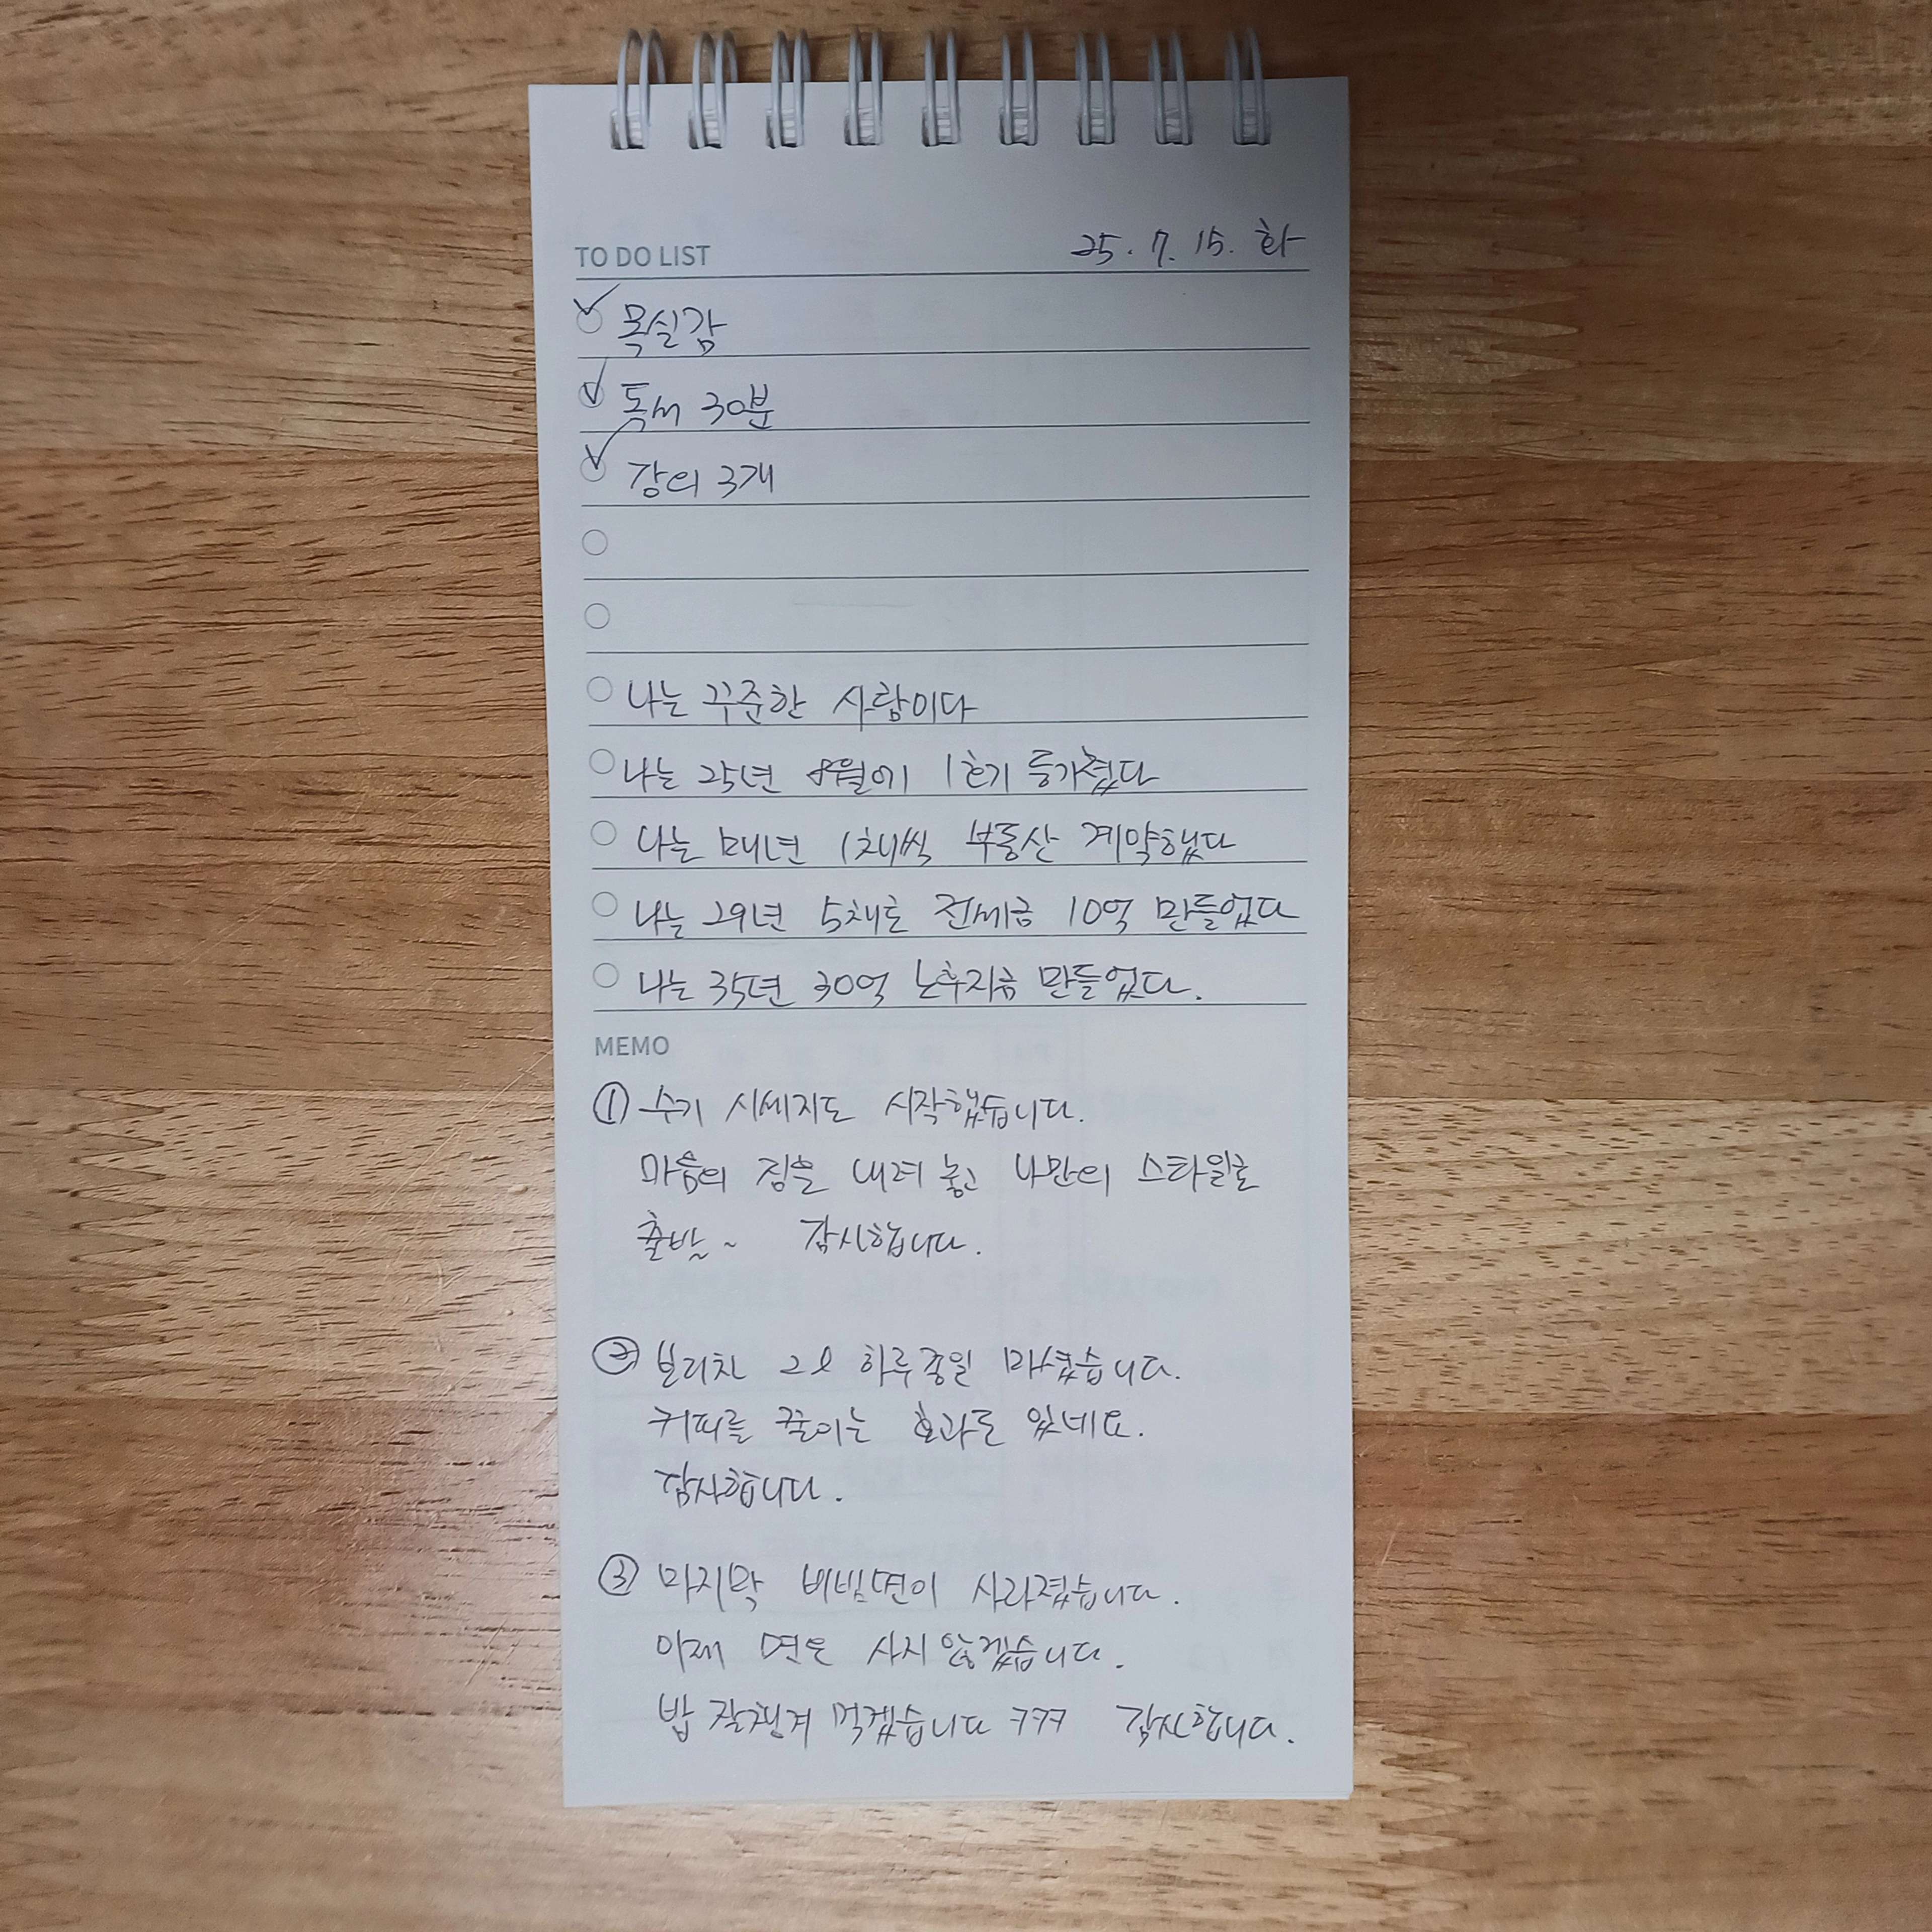 TO DO LIST 25. 7. 15. 화
목실감
독서 30분
강의 3개
나는 꾸준한 사람이다
나는 25년 8월에 1호기 등기쳤다
나는 매년 1채씩 부동산 계약했다
나는 29년 5채로 전세금 10억 만들었다
나는 35년 30억 노후자금 만들었다.
MEMO
① 수기 시세지도 시작했습니다.
마음의 짐을 내려 놓고 나만의 스타일로
출발~ 감사합니다.
② 보리차 2l 하루종일 마셨습니다.
커피를 줄이는 효과도 있네요.
감사합니다.
③ 마지막 비빔면이 사라졌습니다.
이제 면은 사지 않겠습니다.
밥 잘챙겨 먹겠습니다 ㅋㅋㅋ 감사합니다.